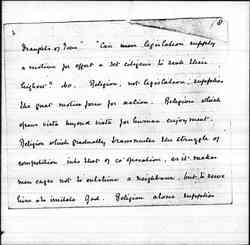 8
Draughts of Poem" "Can mere legislation supply
a motive for effort & set citizens to seek their
highest? No. Religion, not legislation, supplies
the great motive force for action. Religion which
opens vista beyond vista for human enjoyment.
Religion which gradually transmutes the struggle of
competition into that of co operation, as it makes
men eager not to outshine a neighbour, but to serve
him who exalteth God. Religion alone supplies